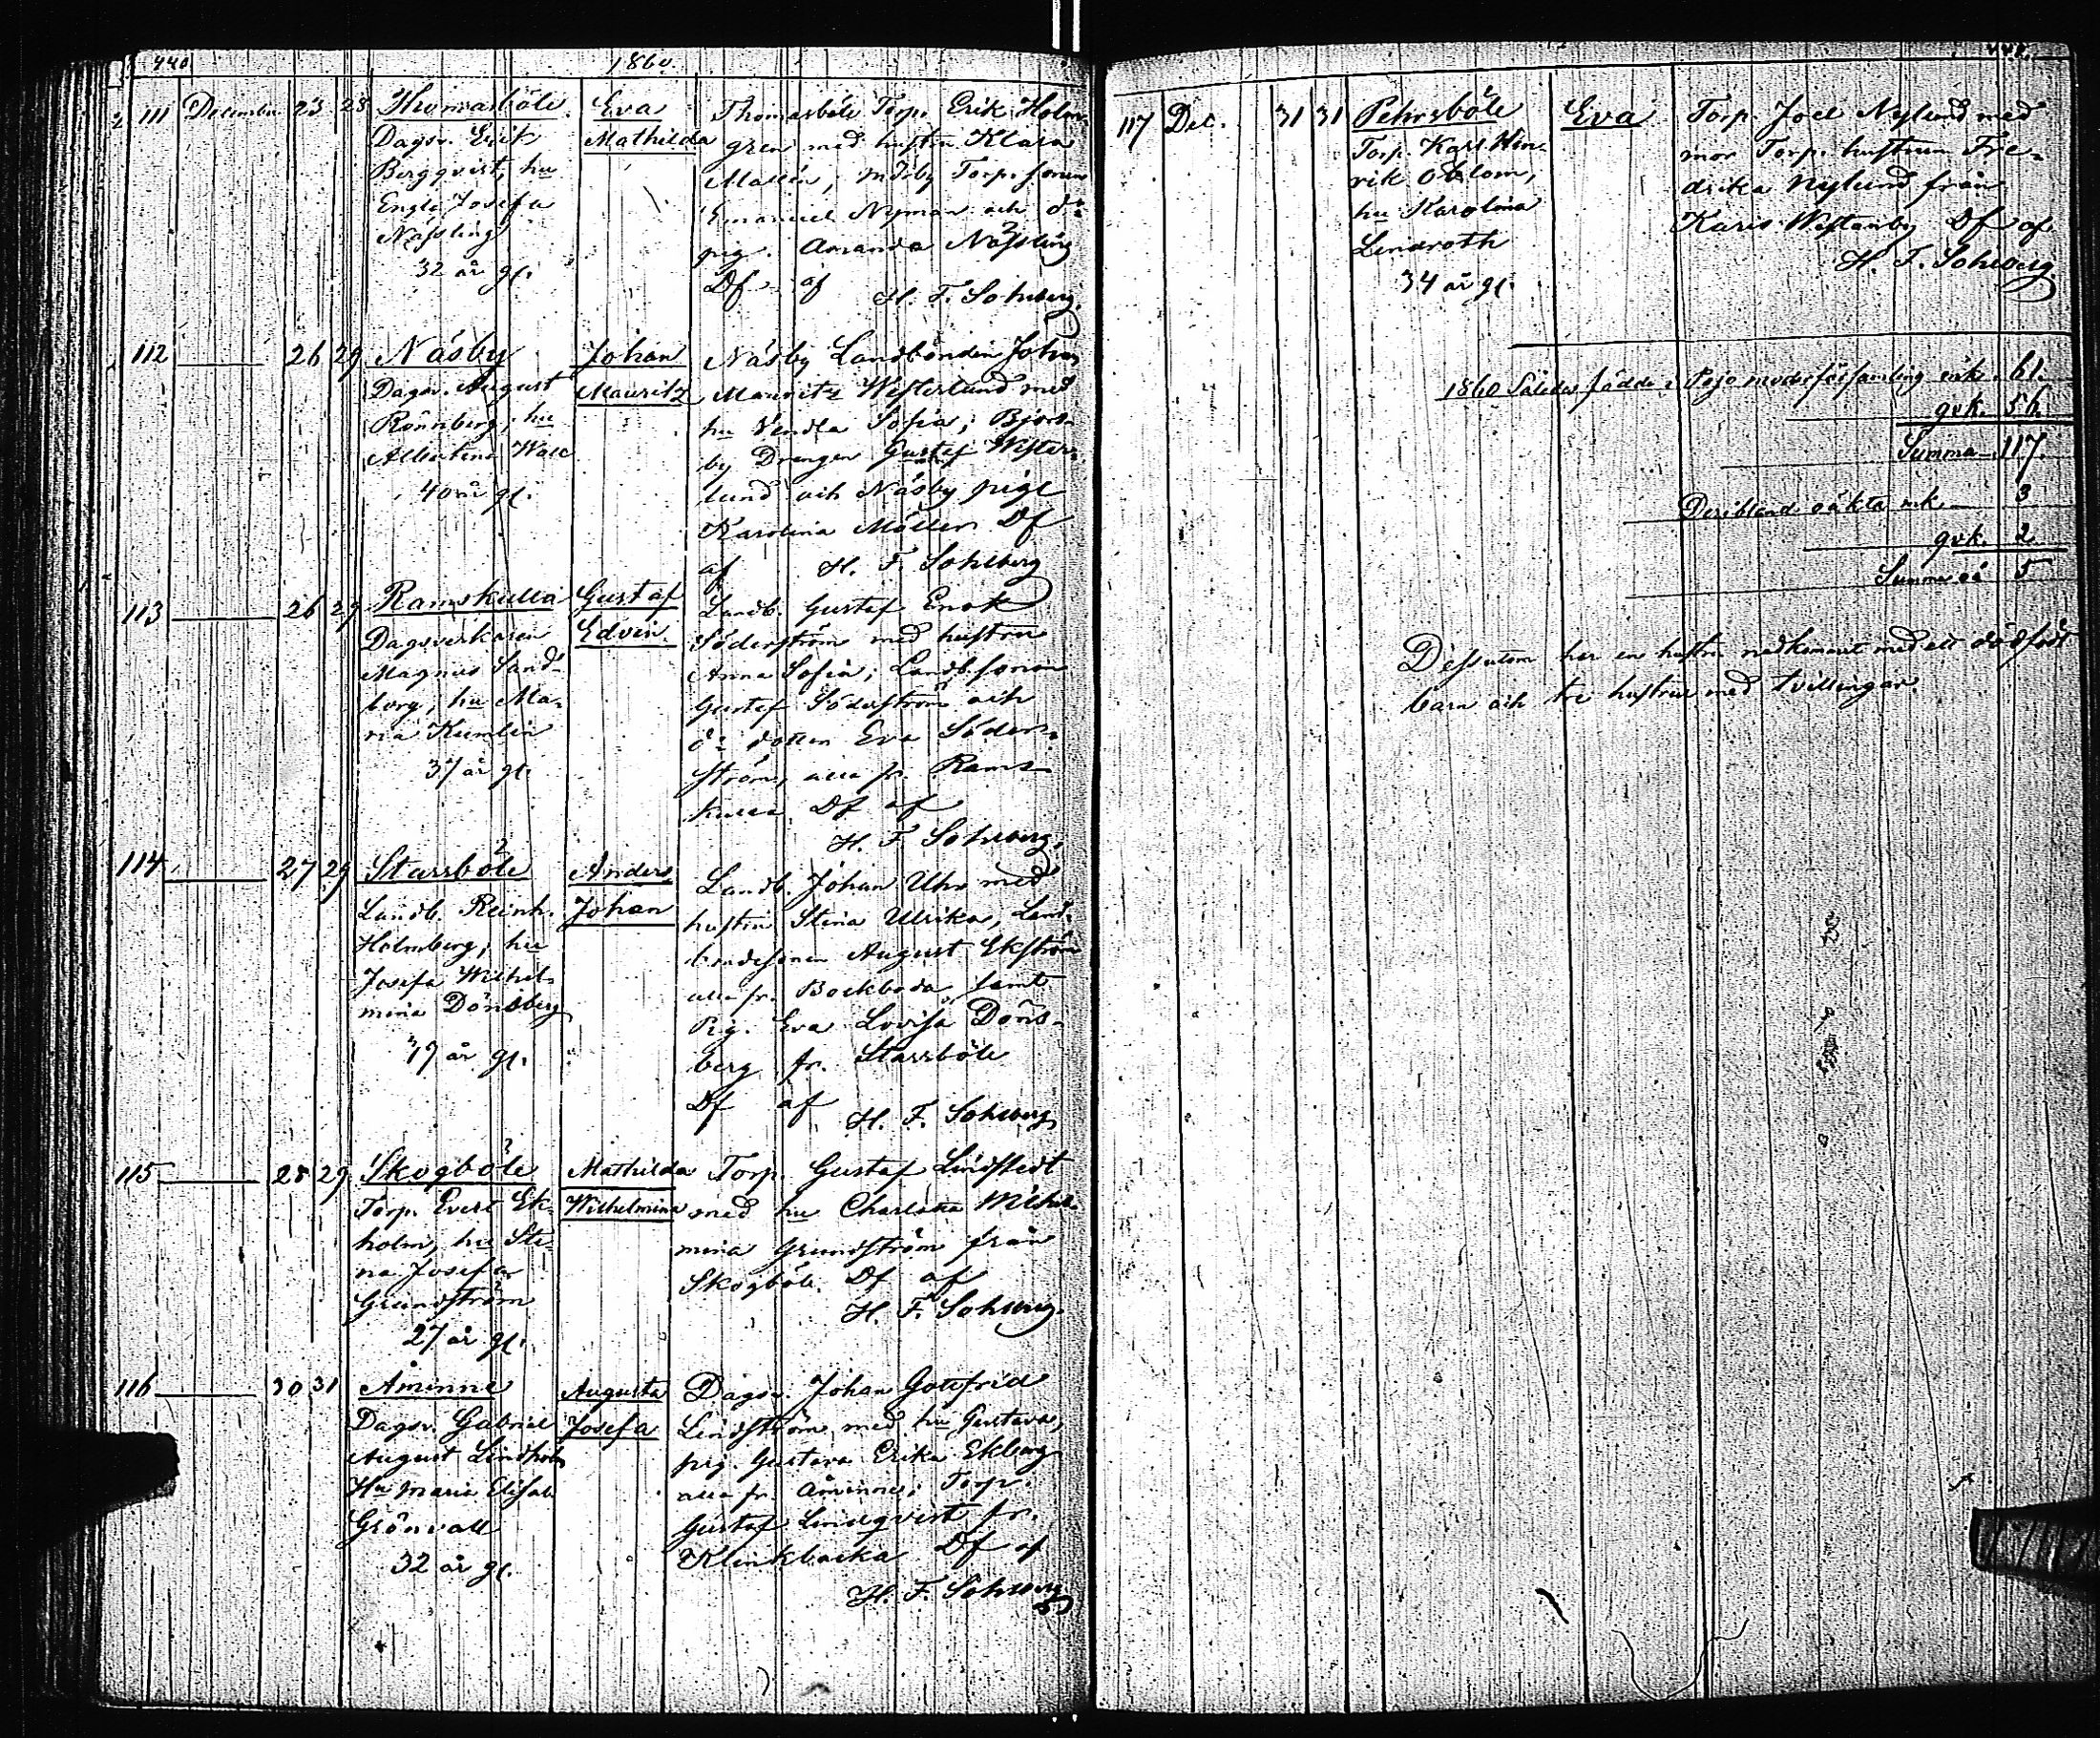 440
1860.
111 December 23 28 Thomasböle Eva
Dagsv. Erik Mathilda
Bergqvist, hu
Engla Josefa
Nässling
32 år gl.
Thomasböle Torp. Erik Holm-
gren med hustru Klara
Torp. sonen
Emanuel Nyman och d:o
pig. Amanda Nässling
Df af
H. F. Sohlberg.
112 26 29 Näsby Johan
Dagsv. August Mauritz
Rönnberg, hu
Albertina Wall
40 år gl.
Näsby Landbonden Johan
Mauritz Westerlund med
hu Vendla Sofia; Björs-
by Drengen Gustaf Wester-
lund och Näsby pige
Karolina Möller Df
af H. F. Sohlberg
113 26 29 Ramskulla Gustaf
Dagsverkaren Edvin.
Magnus Sand-
borg, hu Ma-
ria Kumlin
37 år gl.
Landb. Gustaf Enok
Söderström med hustru
Anna Sofia; Landb. sonen
Gustaf Söderström och
d:o dotter Eva Söder-
ström, alla fr. Rams-
kulla. Df af
H. F. Sohlberg.
114 27 29 Starrböle Anders
Landb. Reinh. Johan
Holmberg, hu
Josefa Wilhel-
mina Dönsberg
39 år gl.
Landb. Johan Uhr med
hustru Stina Ulrika, Land-
bondesonen August Ekström
alla fr. Bockboda samt
Pig. Eva Lovisa Döns-
berg fr. Starrböle
Df af H. F. Sohlberg
115 28 29 Skogböle Mathilda
Torp. Evert Ek- Wilhelmina
holm, hu Sti-
na Josefa
Grundström
27 år gl.
Torp. Gustaf Lindstedt
med hu Charlotta Wilhel-
mina Grundström från
Skogböle. Df af
H. F. Sohlberg.
116 30 31 Åminne Augusta
Dagsv. Gabriel Josefa
August Lindholm
Hu Maria Elisab.
Grönvall
32 år gl.
Dagsv. Johan Gottfrid
Lindström med hu Gustava,
pig. Gustava Erika Ekberg
alla fr. Åminne; Torp.
Gustaf Lindqvist fr.
Klinkbacka Df af
H. F. Sohlberg
117 Dec. 31 31 Pehrsböle Eva
Torp. Karl Hin-
rik Oblom,
hu Karolina
Lindroth
34 år gl.
Torp. Joel Nylund med
mor Torp. hustrun Fre-
drika Nylund från
Karis Westanby Df af
H. F. Sohlberg
1860 Således födde i Pojo moderförsamling mk. 61.
qvk. 56.
Summa 117.
Deribland oäkta mk. 3
qvk. 2
Summa oä 5
Dessutom har en hustru nedkommit med ett dödfödt
barn och tre hustrur med tvillingar.